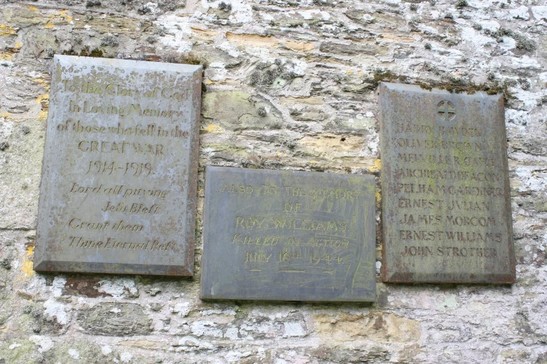 To the Glory of God
In Loving Memory
of those who fell in the
GREAT WAR
1914-1919.
Lord all pitying
Jesu Blest
Grant them
Thine Eternal Rest
OF
ROY WILLIAMS
KILLED IN ACTION
JULY 1944
HARRY
OLIVER
MELVILLE R
ARCHIBALD
PELHAM GARDNER
ERNEST JULYAN
JAMES MORCOM
ERNEST WILLIAMS
JOHN STROTHER